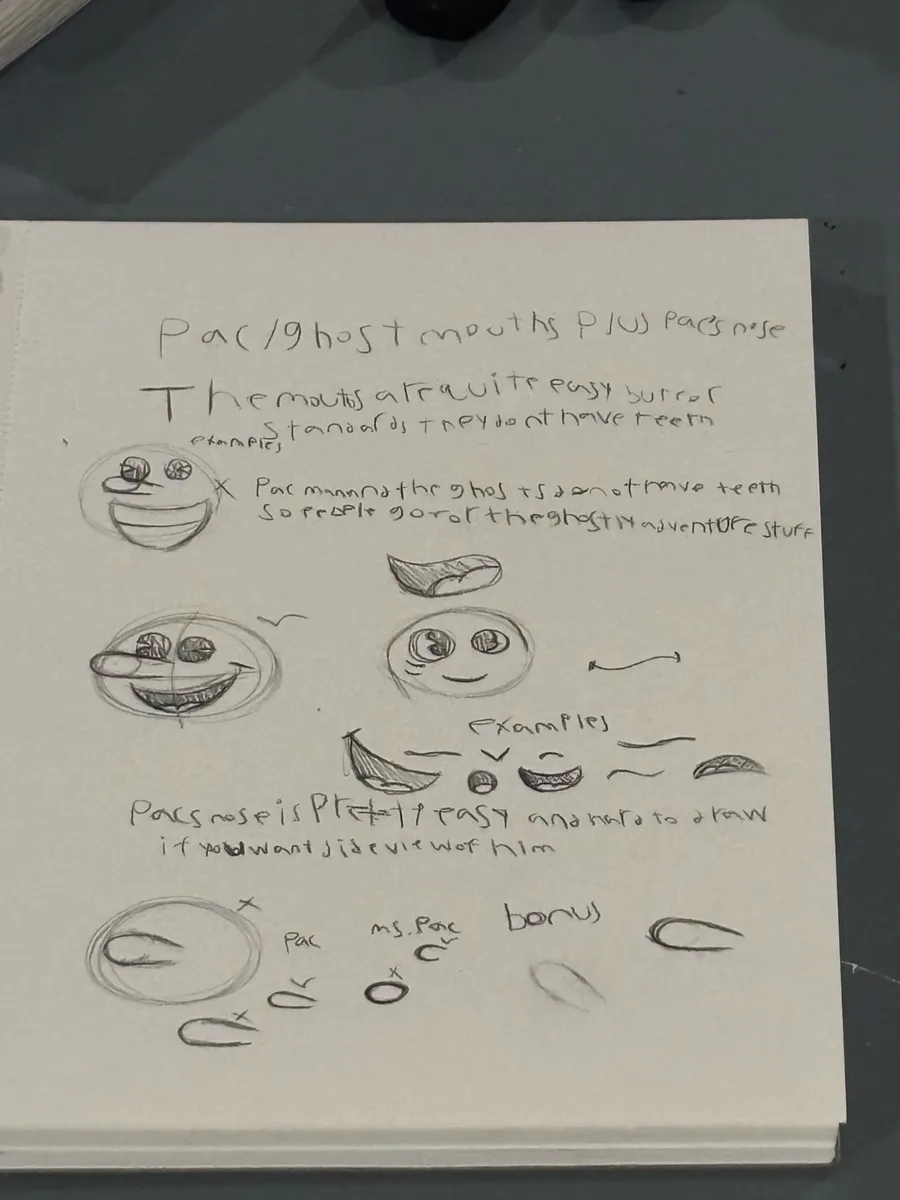 Pac/ghost mouths plus Pac's nose
The mouths are quite easy but for
standards they dont have teeth
examples
Pac man and the ghosts do not have teeth
so people go for the ghostly adventure stuff
examples
Pacs nose is pretty easy and hard to draw
if you want side view of him
Pac
ms. Pac
bonus